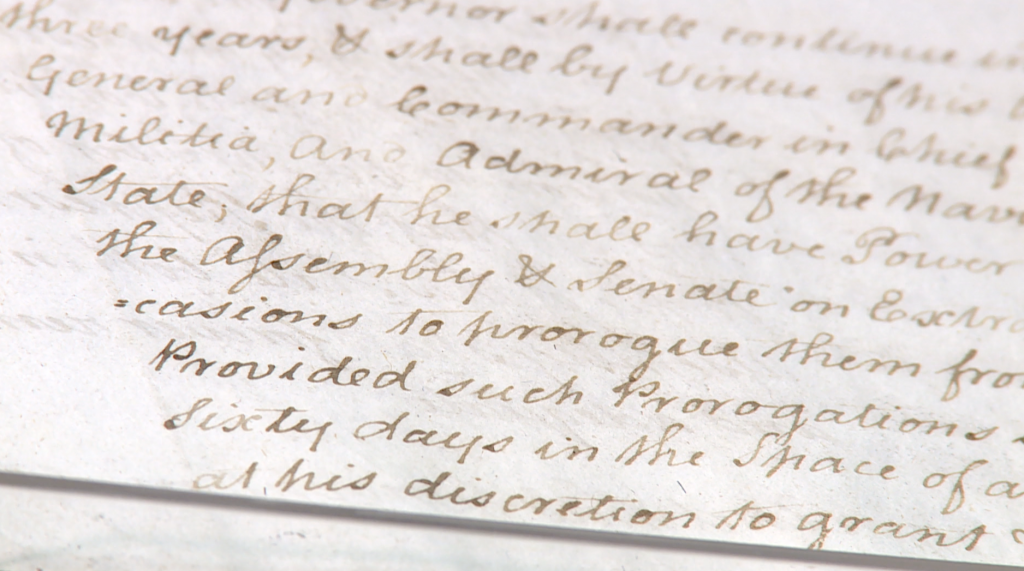 shall continue in
three years, & shall by Virtue of his
General and Commander in Chief
Militia, and Admiral of the Nav
State; that he shall have Power
the Assembly & Senate on Extra
=casions to prorogue them fro
Provided such Prorogations
Sixty days in the Space of a
at his discretion to grant